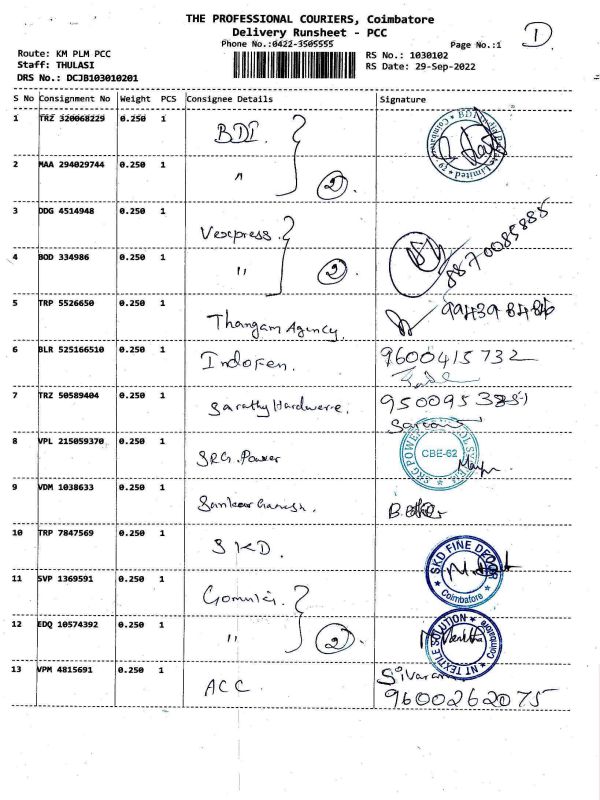 THE PROFESSIONAL COURIERS, Coimbatore
Delivery Runsheet - PCC
Phone No.:0422-3505555
Page No.:1
1
Route: KM PLM PCC
RS No.: 1030102
Staff: THULASI
RS Date: 29-Sep-2022
DRS No.: DCJB103010201
S No Consignment No Weight PCS Consignee Details Signature
1 TRZ 320068229 0.250 1 BDI
2 MAA 294029744 0.250 1 " 2
3 DDG 4514948 0.250 1 Vexpress.
4 BOD 334986 0.250 1 " 2 8870085885
5 TRP 5526650 0.250 1 Thangam Agency.
6 BLR 525166510 0.250 1 Indofen. 9600415732
7 TRZ 50589404 0.250 1 Sarathy Hardware.
8 VPL 215059370 0.250 1 SRG. Power CBE-62
9 VDM 1038633 0.250 1
10 TRP 7847569 0.250 1 SKD. SKD FINE DECOR Coimbatore
11 SVP 1369591 0.250 1
12 EDQ 10574392 0.250 1 " 2 NT TEXTILE SOLUTION Coimbatore
13 VPM 4815691 0.250 1 ACC Sivaram
9600262075